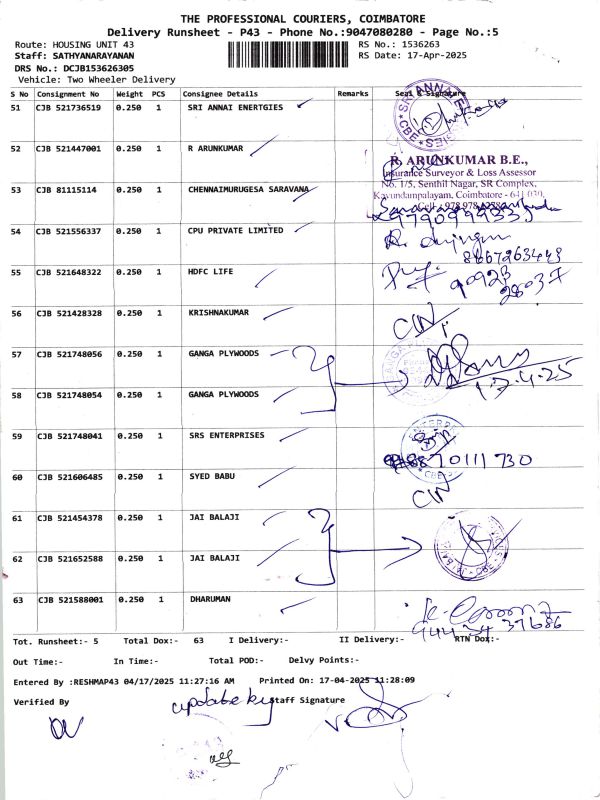 THE PROFESSIONAL COURIERS, COIMBATORE
Delivery Runsheet - P43 - Phone No.:9047080280 - Page No.:5
Route: HOUSING UNIT 43 RS No.: 1536263
Staff: SATHYANARAYANAN RS Date: 17-Apr-2025
DRS No.: DCJB153626305
Vehicle: Two Wheeler Delivery
S No Consignment No Weight PCS Consignee Details Remarks Seal & Signature
51 CJB 521736519 0.250 1 SRI ANNAI ENERTGIES
SRI ANNAI
CBE
52 CJB 521447001 0.250 1 R ARUNKUMAR
R. ARUNKUMAR B.E.,
Insurance Surveyor & Loss Assessor
53 CJB 81115114 0.250 1 CHENNAIMURUGESA SARAVANA
No. 1/5, Senthil Nagar, SR Complex,
Kavundampalayam, Coimbatore - 641 030.
54 CJB 521556337 0.250 1 CPU PRIVATE LIMITED
8667263443
55 CJB 521648322 0.250 1 HDFC LIFE
90923
28037
56 CJB 521428328 0.250 1 KRISHNAKUMAR
57 CJB 521748056 0.250 1 GANGA PLYWOODS
17.4.25
58 CJB 521748054 0.250 1 GANGA PLYWOODS
59 CJB 521748041 0.250 1 SRS ENTERPRISES
8870111730
60 CJB 521606485 0.250 1 SYED BABU
61 CJB 521454378 0.250 1 JAI BALAJI
62 CJB 521652588 0.250 1 JAI BALAJI
63 CJB 521588001 0.250 1 DHARUMAN
Tot. Runsheet:- 5 Total Dox:- 63 I Delivery:- II Delivery:- RTN Dox:-
Out Time:- In Time:- Total POD:- Delvy Points:-
Entered By :RESHMAP43 04/17/2025 11:27:16 AM Printed On: 17-04-2025 11:28:09
Verified By update by Staff Signature